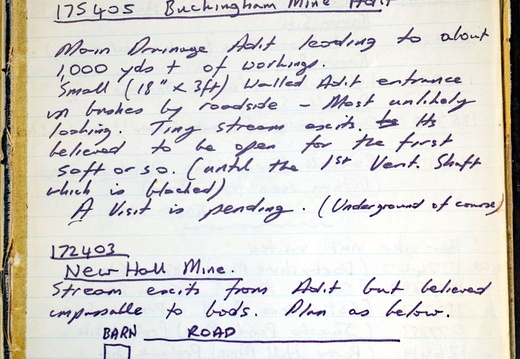 175405 Buckingham Mine Adit
Main Drainage Adit leading to about
1,000 yds + of workings.
Small (18" x 3ft) Walled Adit entrance
in bushes by roadside - Most unlikely
looking. Tiny stream exits. Its
believed to be open for the first
50ft or so. (until the 1st Vent. Shaft
which is blocked)
A Visit is pending. (Underground of course)
172403
New Hall Mine.
Stream exits from Adit but believed
impassable to bods. Plan as below.
BARN ROAD